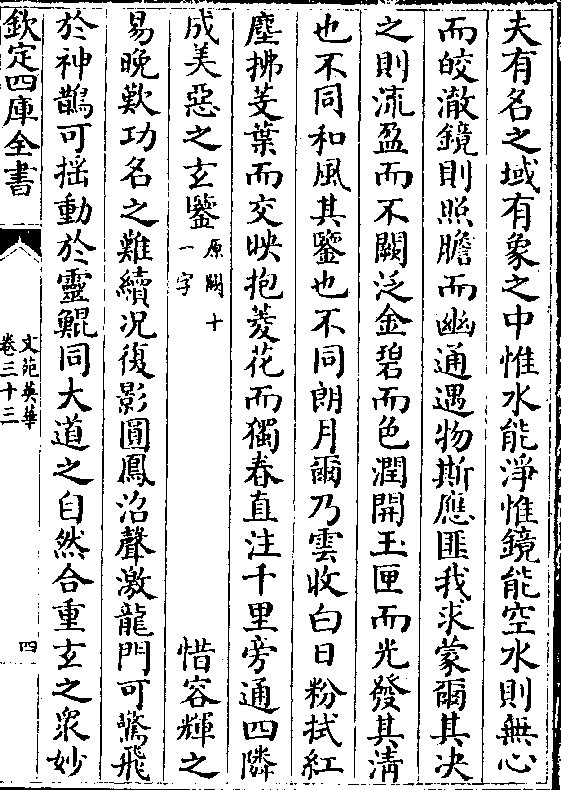 夫有名之域有象之中惟水能淨惟鏡能空水則無心
而皎澈鏡則照膽而幽通遇物斯應匪我求蒙爾其决
之則流盈而不闕泛金碧而色潤開玉匣而光發其清
也不同和風其鑒也不同朗月爾乃雲收白日粉拭紅
塵拂芰葉而交映抱菱花而獨春直注千里旁通四隣
成美惡之玄鑒原闕十一字惜容輝之
易晚歎功名之難續况復影圓鳳沼聲激龍門可驚飛
於神鵲可揺動於靈鯤同大道之自然合重玄之衆妙
欽定四庫全書
文苑英華
卷三十三
四